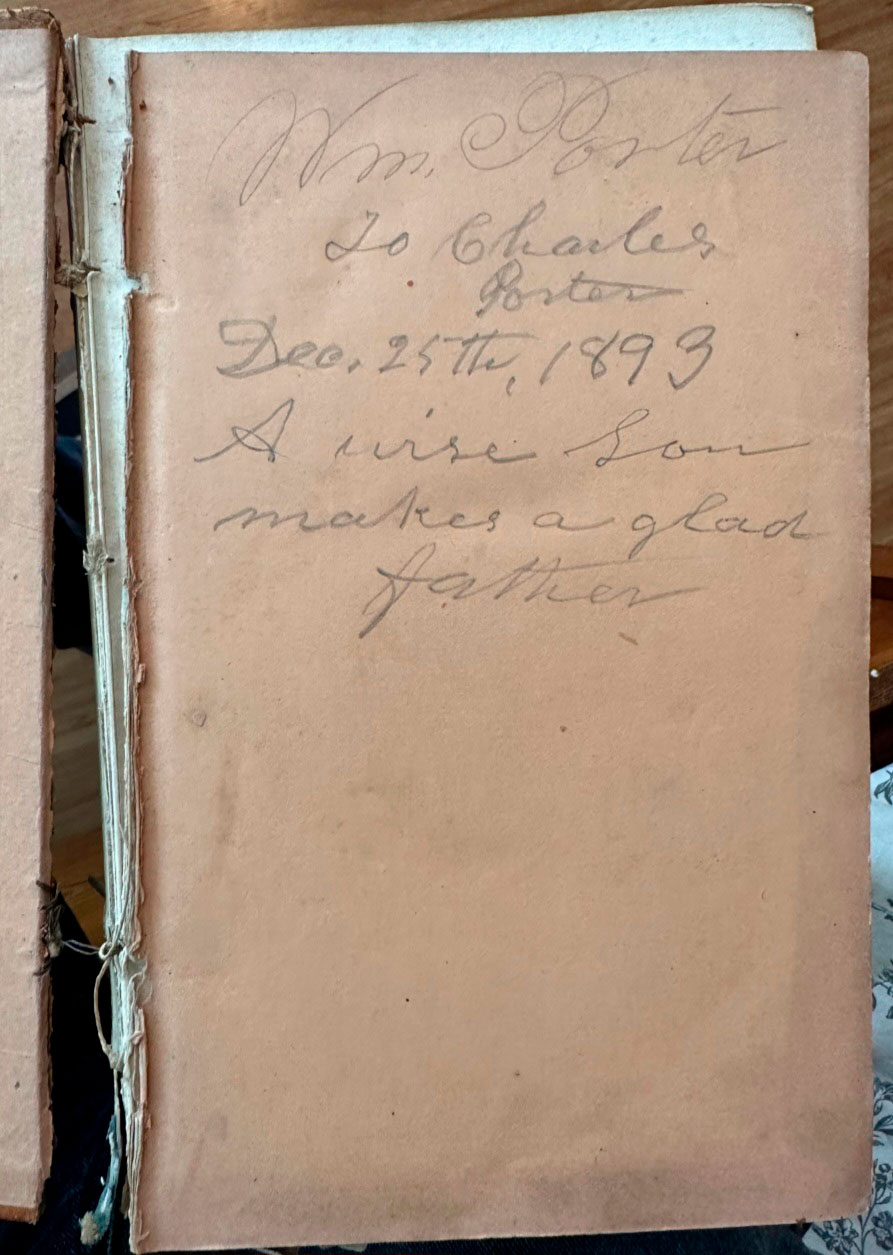 Wm. Porter
To Charles
Porter
Dec. 25th, 1893
A wise Son
makes a glad
father